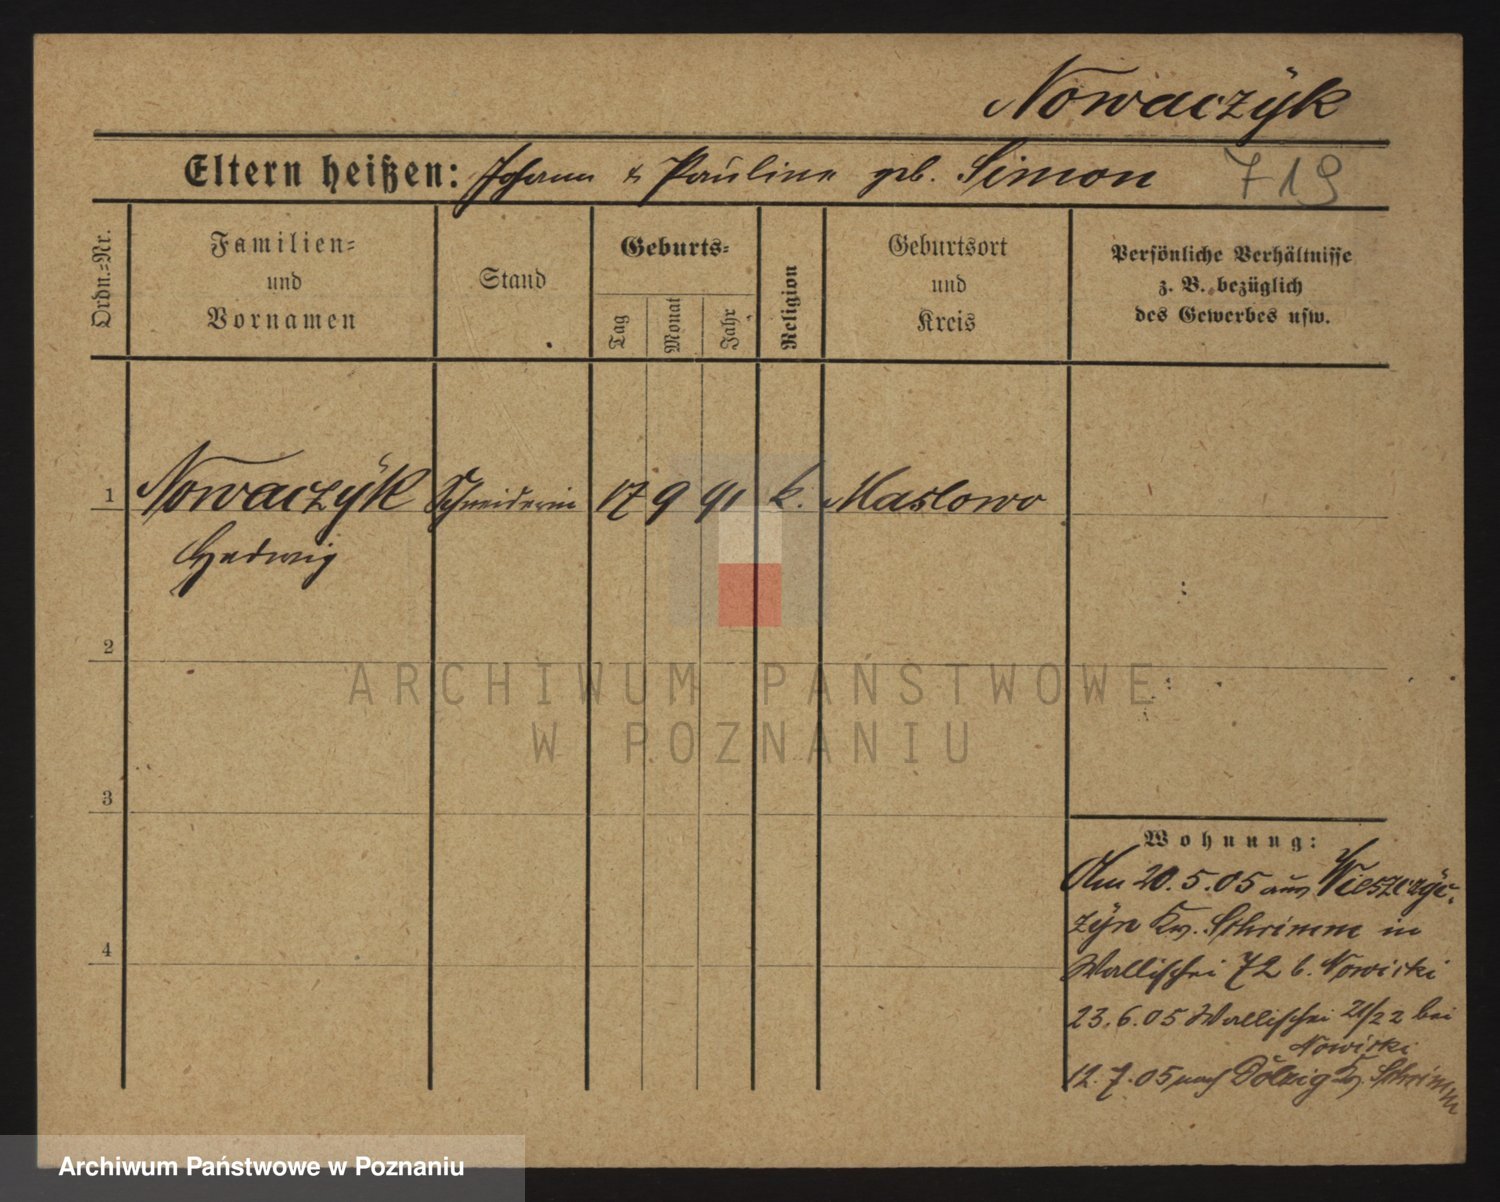 Nowaczÿk
Eltern heißen: Johann & Pauline geb. Simon 719
Ordn.=Nr.
Familien=
und
Vornamen
Stand
Geburts=
Tag
Monat
Jahr
Religion
Geburtsort
und
Kreis
Persönliche Verhältnisse
z. B. bezüglich
des Gewerbes usw.
1 Nowaczÿk Schneiderin 17 9 91 k. Maslowo
Hedwig
2
3
4
Wohnung:
Am 20.5.05 aus
Kr. Schrimm in
Wallischei 72 b. Nowicki
23.6.05 Wallischei 21/22 bei
Nowicki
12.7.05 nach Dolzig Kr. Schrimm
ARCHIWUM PAŃSTWOWE
W POZNANIU
Archiwum Państwowe w Poznaniu